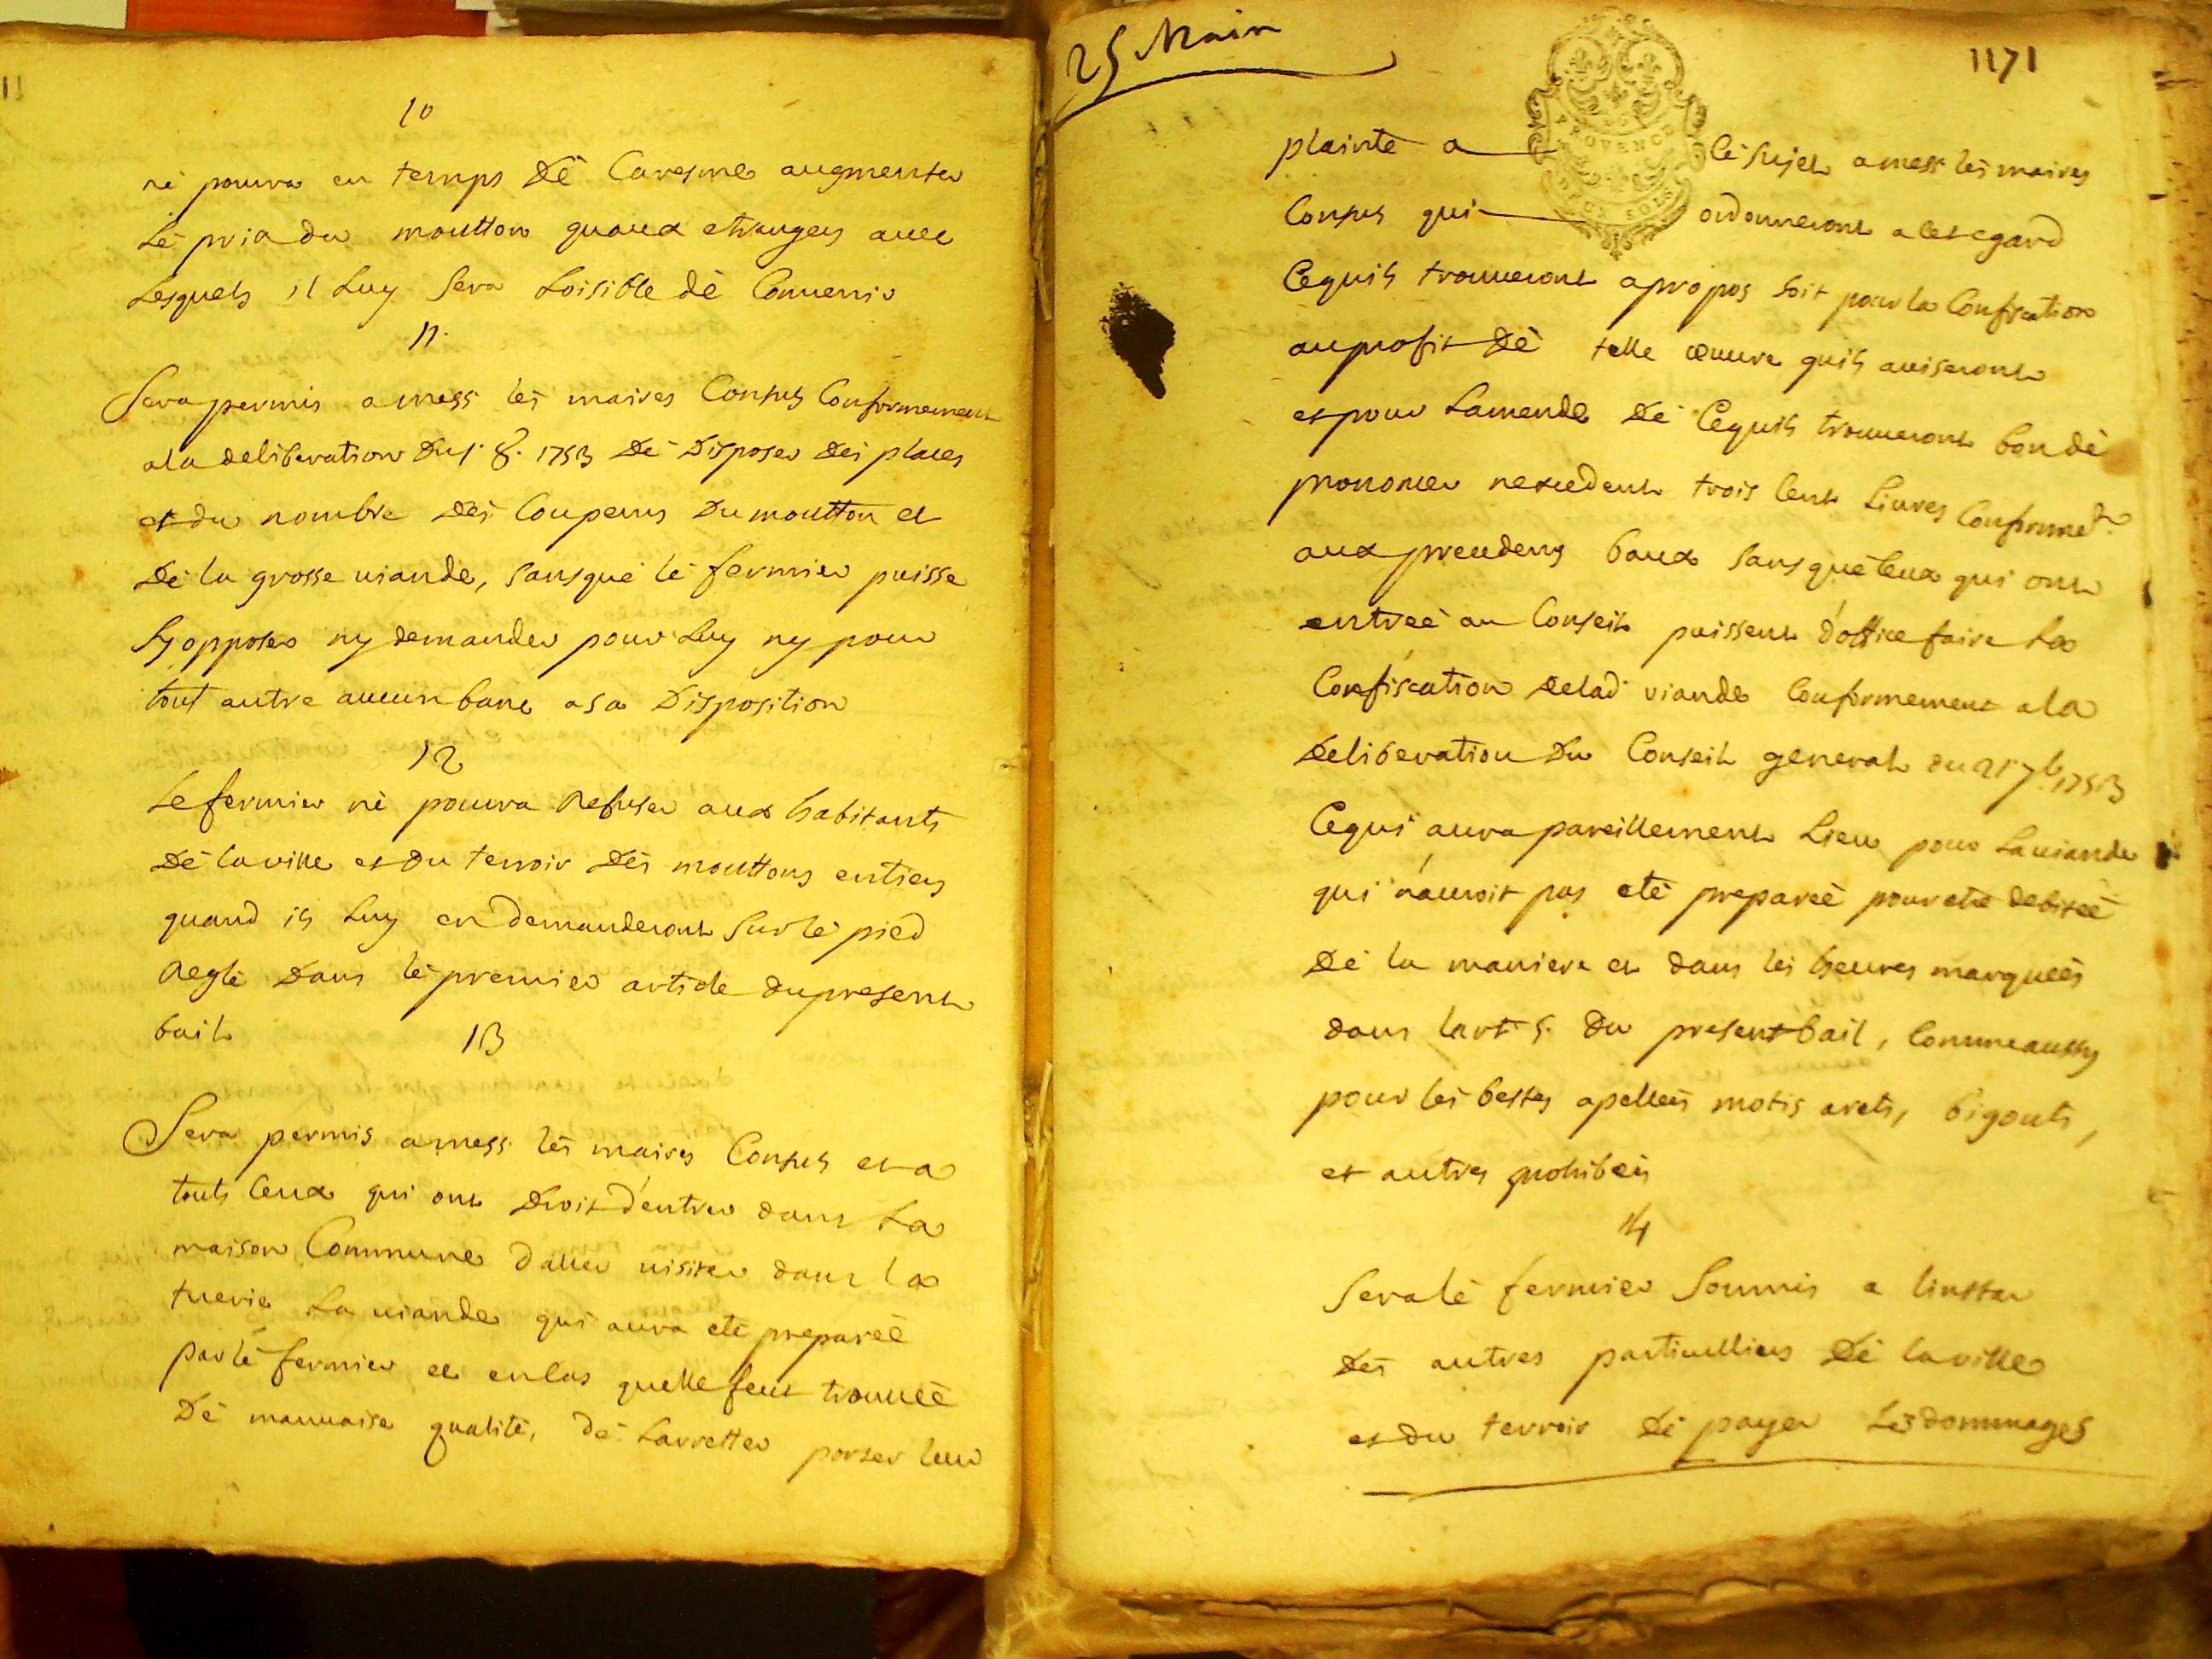 10
nè pourra en temps dè Caresme augmenter
Lè prix du moutton quaux etrangers avec
Lesquels il Luy Sera Loisible dè Convenir
11.
Sera permis a mess. lès maires Consuls Conformement
a la deliberation du 1. 8. 1753 dè Disposer dès places
et du nombre dès Coupeurs du moutton et
dè la grosse viande, Sans què lè fermier puisse
Sy opposer ny demander pour Luy ny pour
tout autre aucun banc a sa Disposition
12
Le fermier nè pourra Refuser aux habitants
dè la ville et du terroir dès mouttons entiers
quand ils Luy en demanderont Sur lè pied
Reglé dans lè premier article du present
bail
13
Sera permis a mess. lès maires Consuls et a
touts Ceux qui ont droit d'entrer dans La
maison Commune d'aller visiter dans la
tuerie La viande qui aura etè preparèè
par lè fermier et en Cas quelle feut trouvèè
dè mauvaise qualitè, dè Larretter porter leur
25 Main
1171
PROVENCE
DEUX SOLS
plainte a cè Sujet a mess. lès maires
Consuls qui ordonneront a cet egard
Cequils trouveront apropos Soit pour la Confiscation
au profit dè telle œuvre quils aviseront
et pour Lamende dè Cequils trouveront bon dè
prononcer nexcedent trois Cent Livres Conformet.
aux precedens baux Sans què Ceux qui ont
entreè au Conseil puissent d'office faire La
Confiscation delad. viande Conformement a la
deliberation du Conseil general du 21 7b. 1753
Cequi aura pareillement Lieu pour La viande
qui n'auroit pas etè preparèè pour etre debitèè
dè la maniere et dans lès heures marquèès
dans lart. 5. du present bail, Comme aussy
pour lès bestes apellèès motis arets, bigouts,
et autres prohibèès
14
Sera lè fermier Soumis a linstar
dès autres particulliers dè la ville
et du terroir dè payer Lès dommages